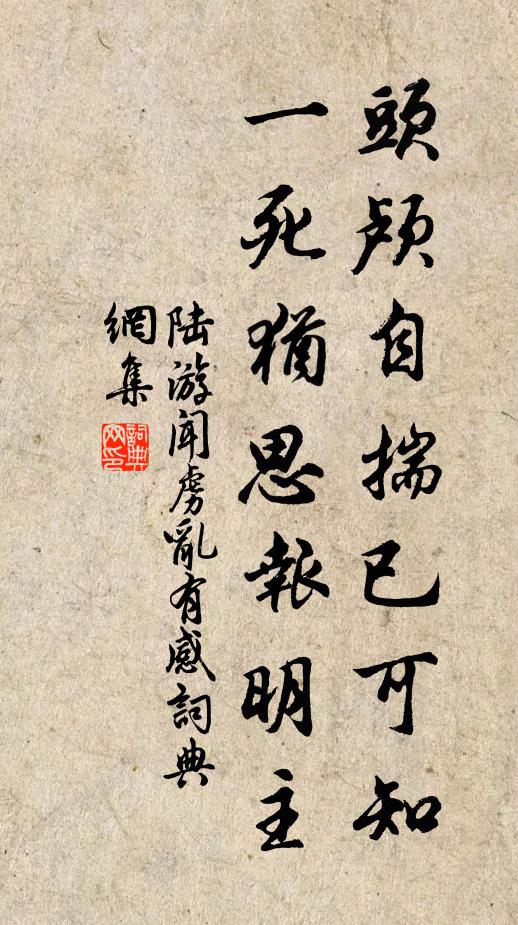 頭顱自揣已可知
一死猶思報明主
陆游闻虏亂有感詞典
網集
詞典网印